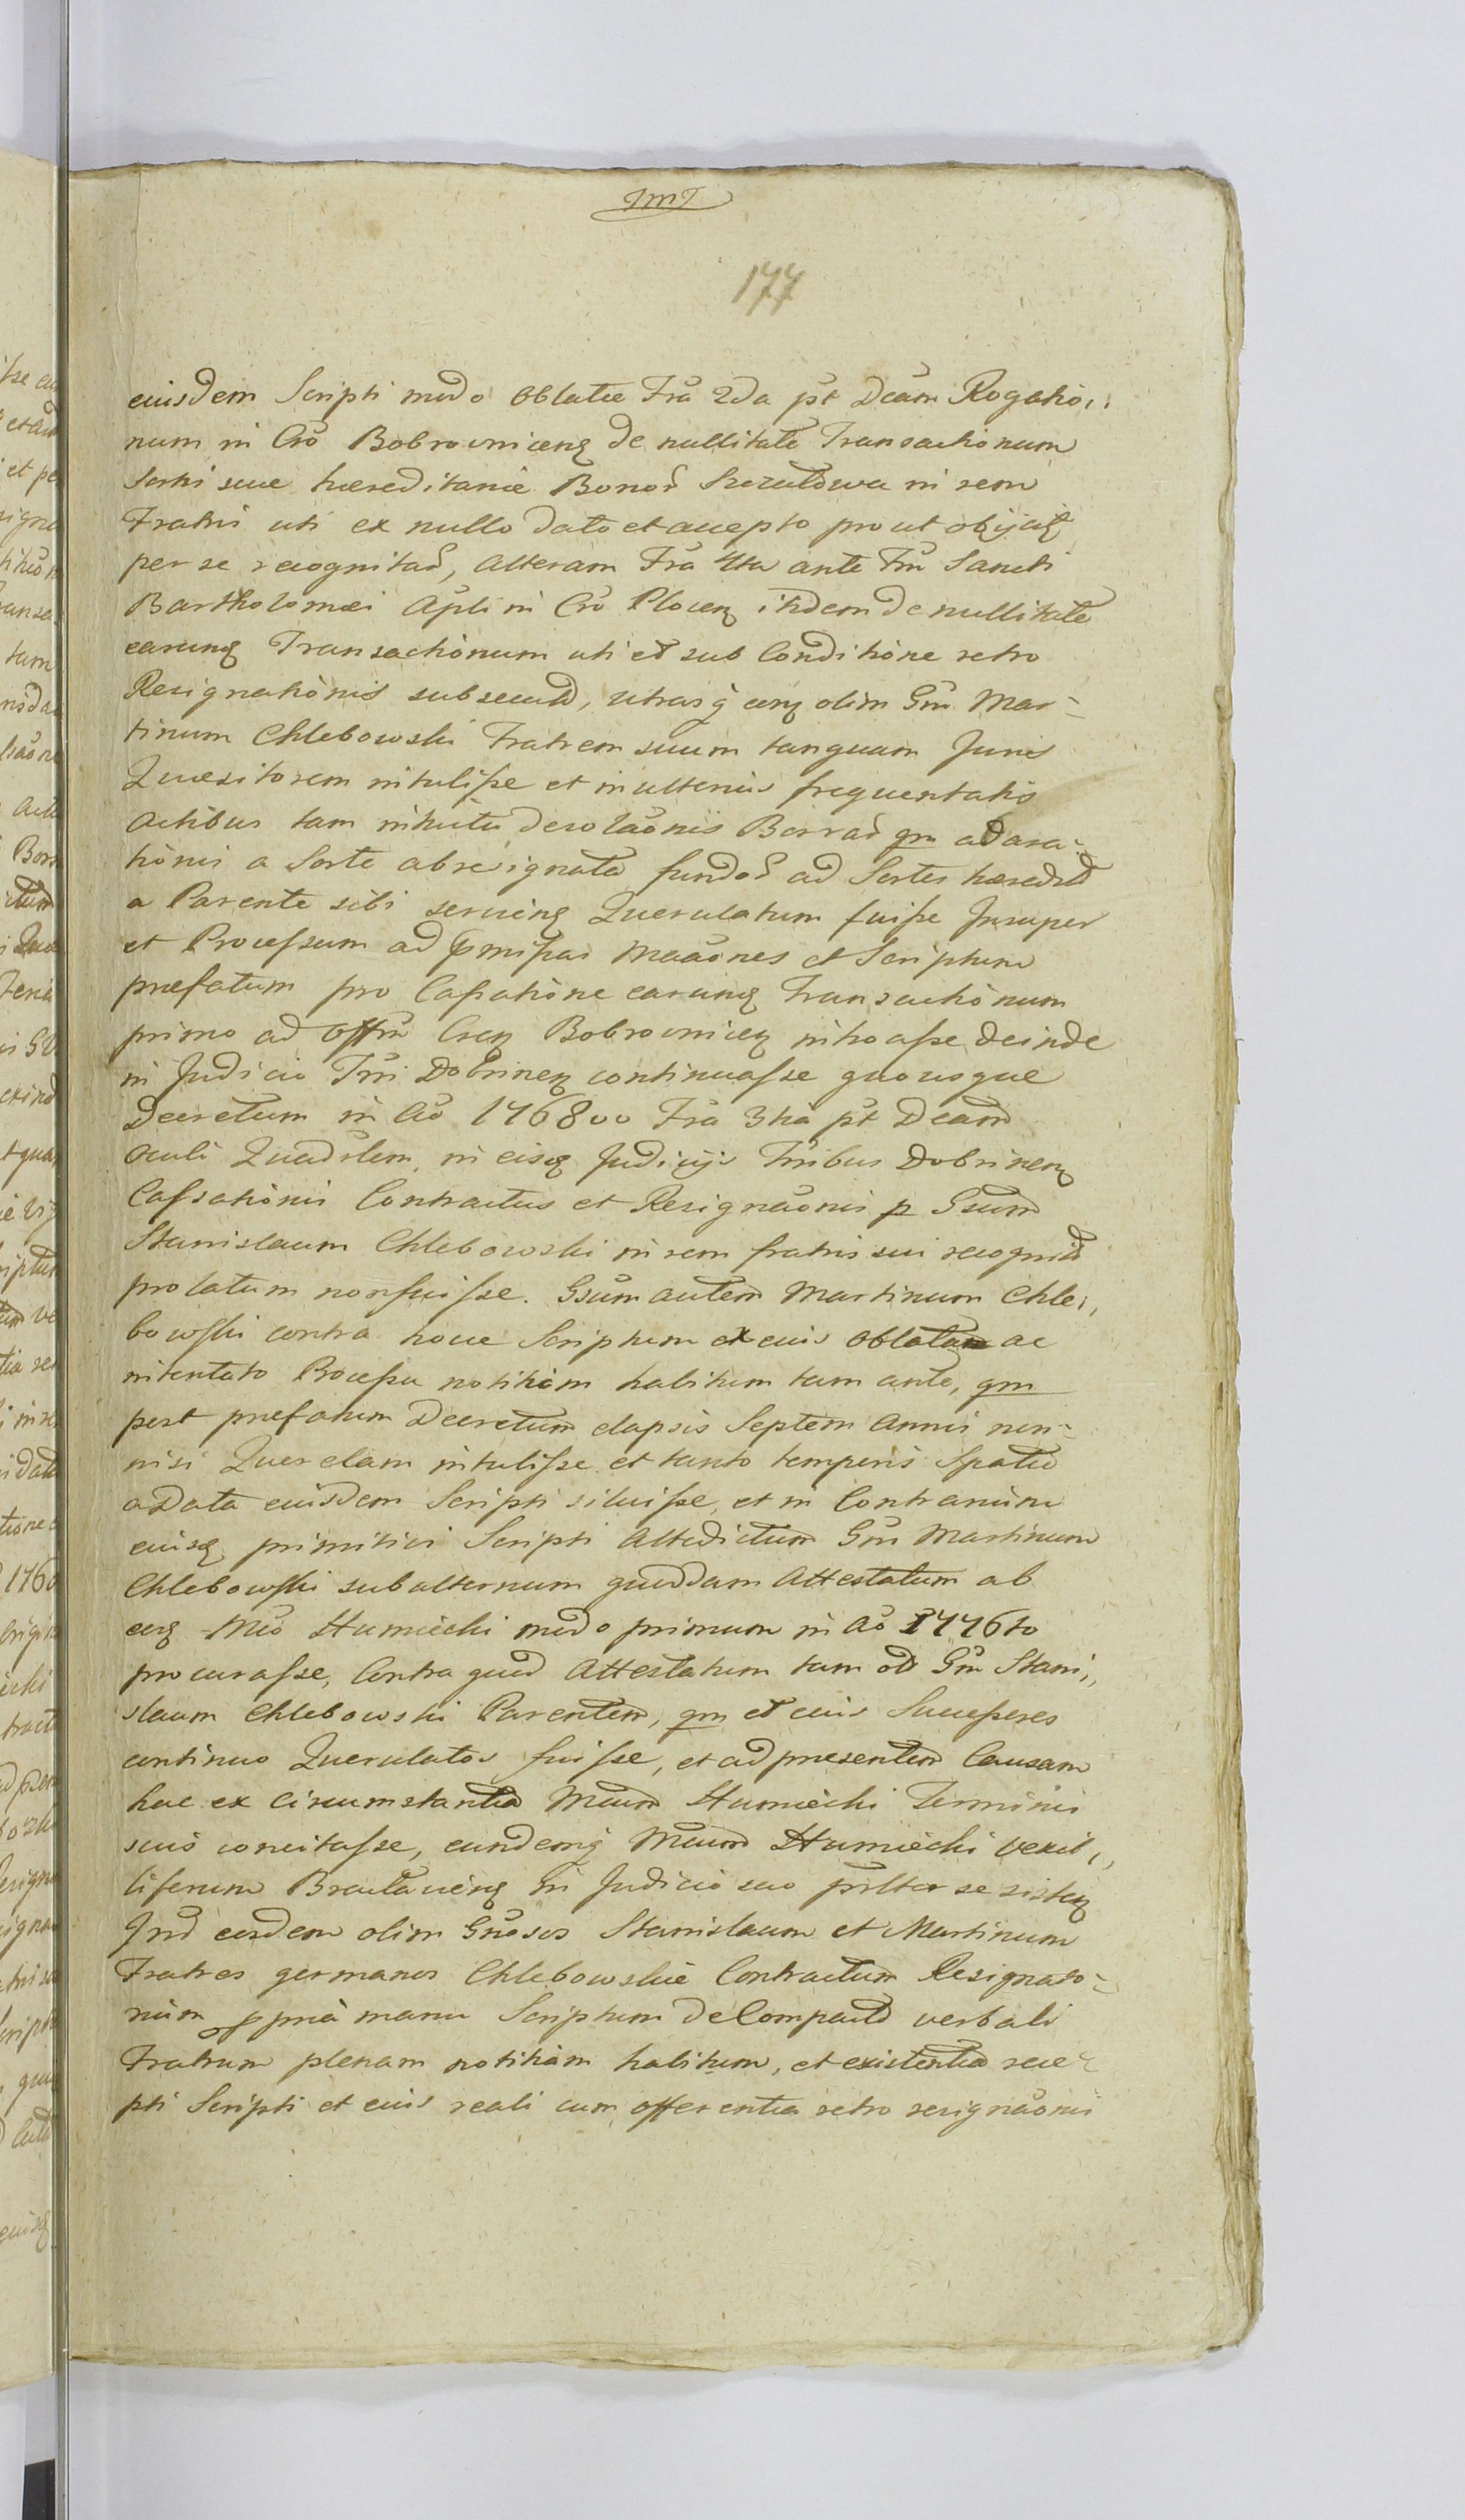 177
eiusdem Scripti modo oblatæ Fra 2da pt Dcam Rogatio,,
num in Cro Bobrovnicen de nullitate Transactionum
Sortis suæ hæreditariæ Bonor Szczutowa in rem
Fratris uti ex nullo dato et accepto prout obijcit
per se recognitar, alteram Fra 4ta ante Fm Sancti
Bartholomæi Apli in Cro Plocen itidem de nullitate
earund Transactionum uti et sub Conditione retro
Resignationis subsecut, utrasq cum olim Gm Mar-
tinum Chlebowski Fratrem suum tanquam Juris
Quæsitorem intulisse et in ulterius frequentatis
Actibus tam intuitu desolaonis Borrar qm ad ara-
tionis a Sorte abresignata fundor ad Sortes hæredit
a Parente sibi servien Querulatum fuisse Insuper
et Processum ad pmissas Maaones et Scriptum
præfatum pro Cassatione earund Transactionum
primo ad Offm Cren Bobrovnicen introasse deinde
in Judicio Trri Dobrinen continuasse quousque
Decretum in Ao 176800 Fra 3tia pt Dcam
Oculi Quadrlem, in eisd Judicijs Trribus Dobrinen
Cassationis Contractus et Resignaonis p Gsum
Stanislaum Chlebowski in rem fratris sui recognit
prolatum non fuisse. Gsum autem Martinum Chle,,
bowski contra hocce Scriptum ex eius oblata ac
intentato Processu notitiam habitum tam ante, qm
post præfatum Decretum elapsis Septem Annis non-
nisi Querelam intulisse et tanto temporis Spatio
a Data eiusdem Scripti siluisse, et in Contrarium
eiusd primitivi Scripti Altedictum Gm Martinum
Chlebowski subalternum quoddam Attestatum ab
eod Mco Humiecki modo primum in Ao 1776to
procurasse, Contra quod Attestatum tam od Gm Stani,,
slaum Chlebowski Parentem, qm et eius Successores
continuo Querulatos fuisse, et ad presentem Causam
hac ex Circumstantia Mcum Humiecki Terminis
suis concitasse, eundemq Mcum Humiecki Vexil,,
liferum Braclavien in Judicio suo prlter se sisten
Ind eosdem olim Gnosos Stanislaum et Martinum
Fratres germanos Chlebowskie Contractum Resignato-
rium ppria manu Scriptum de Compacto verbali
Fratrum plenam notitiam habitum, et existentia rece-
pti Scripti et eius reali cum offerentia retro resignaonis